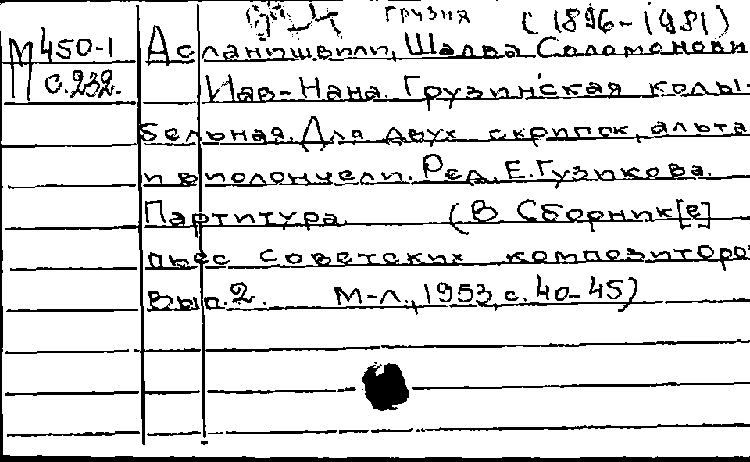 ГРУЗИЯ (1896-1981)
М 450-1 Асланишвили, Шалва Соломонови
с.232. Иав-Нана. Грузинская колы-
бельная. Для двух скрипок, альта
и виолончели. Ред. Е. Гузикова.
Партитура. (В Сборник[е]
пьес советских композиторо
Вып. 2. М-Л., 1953, с. 40-45)